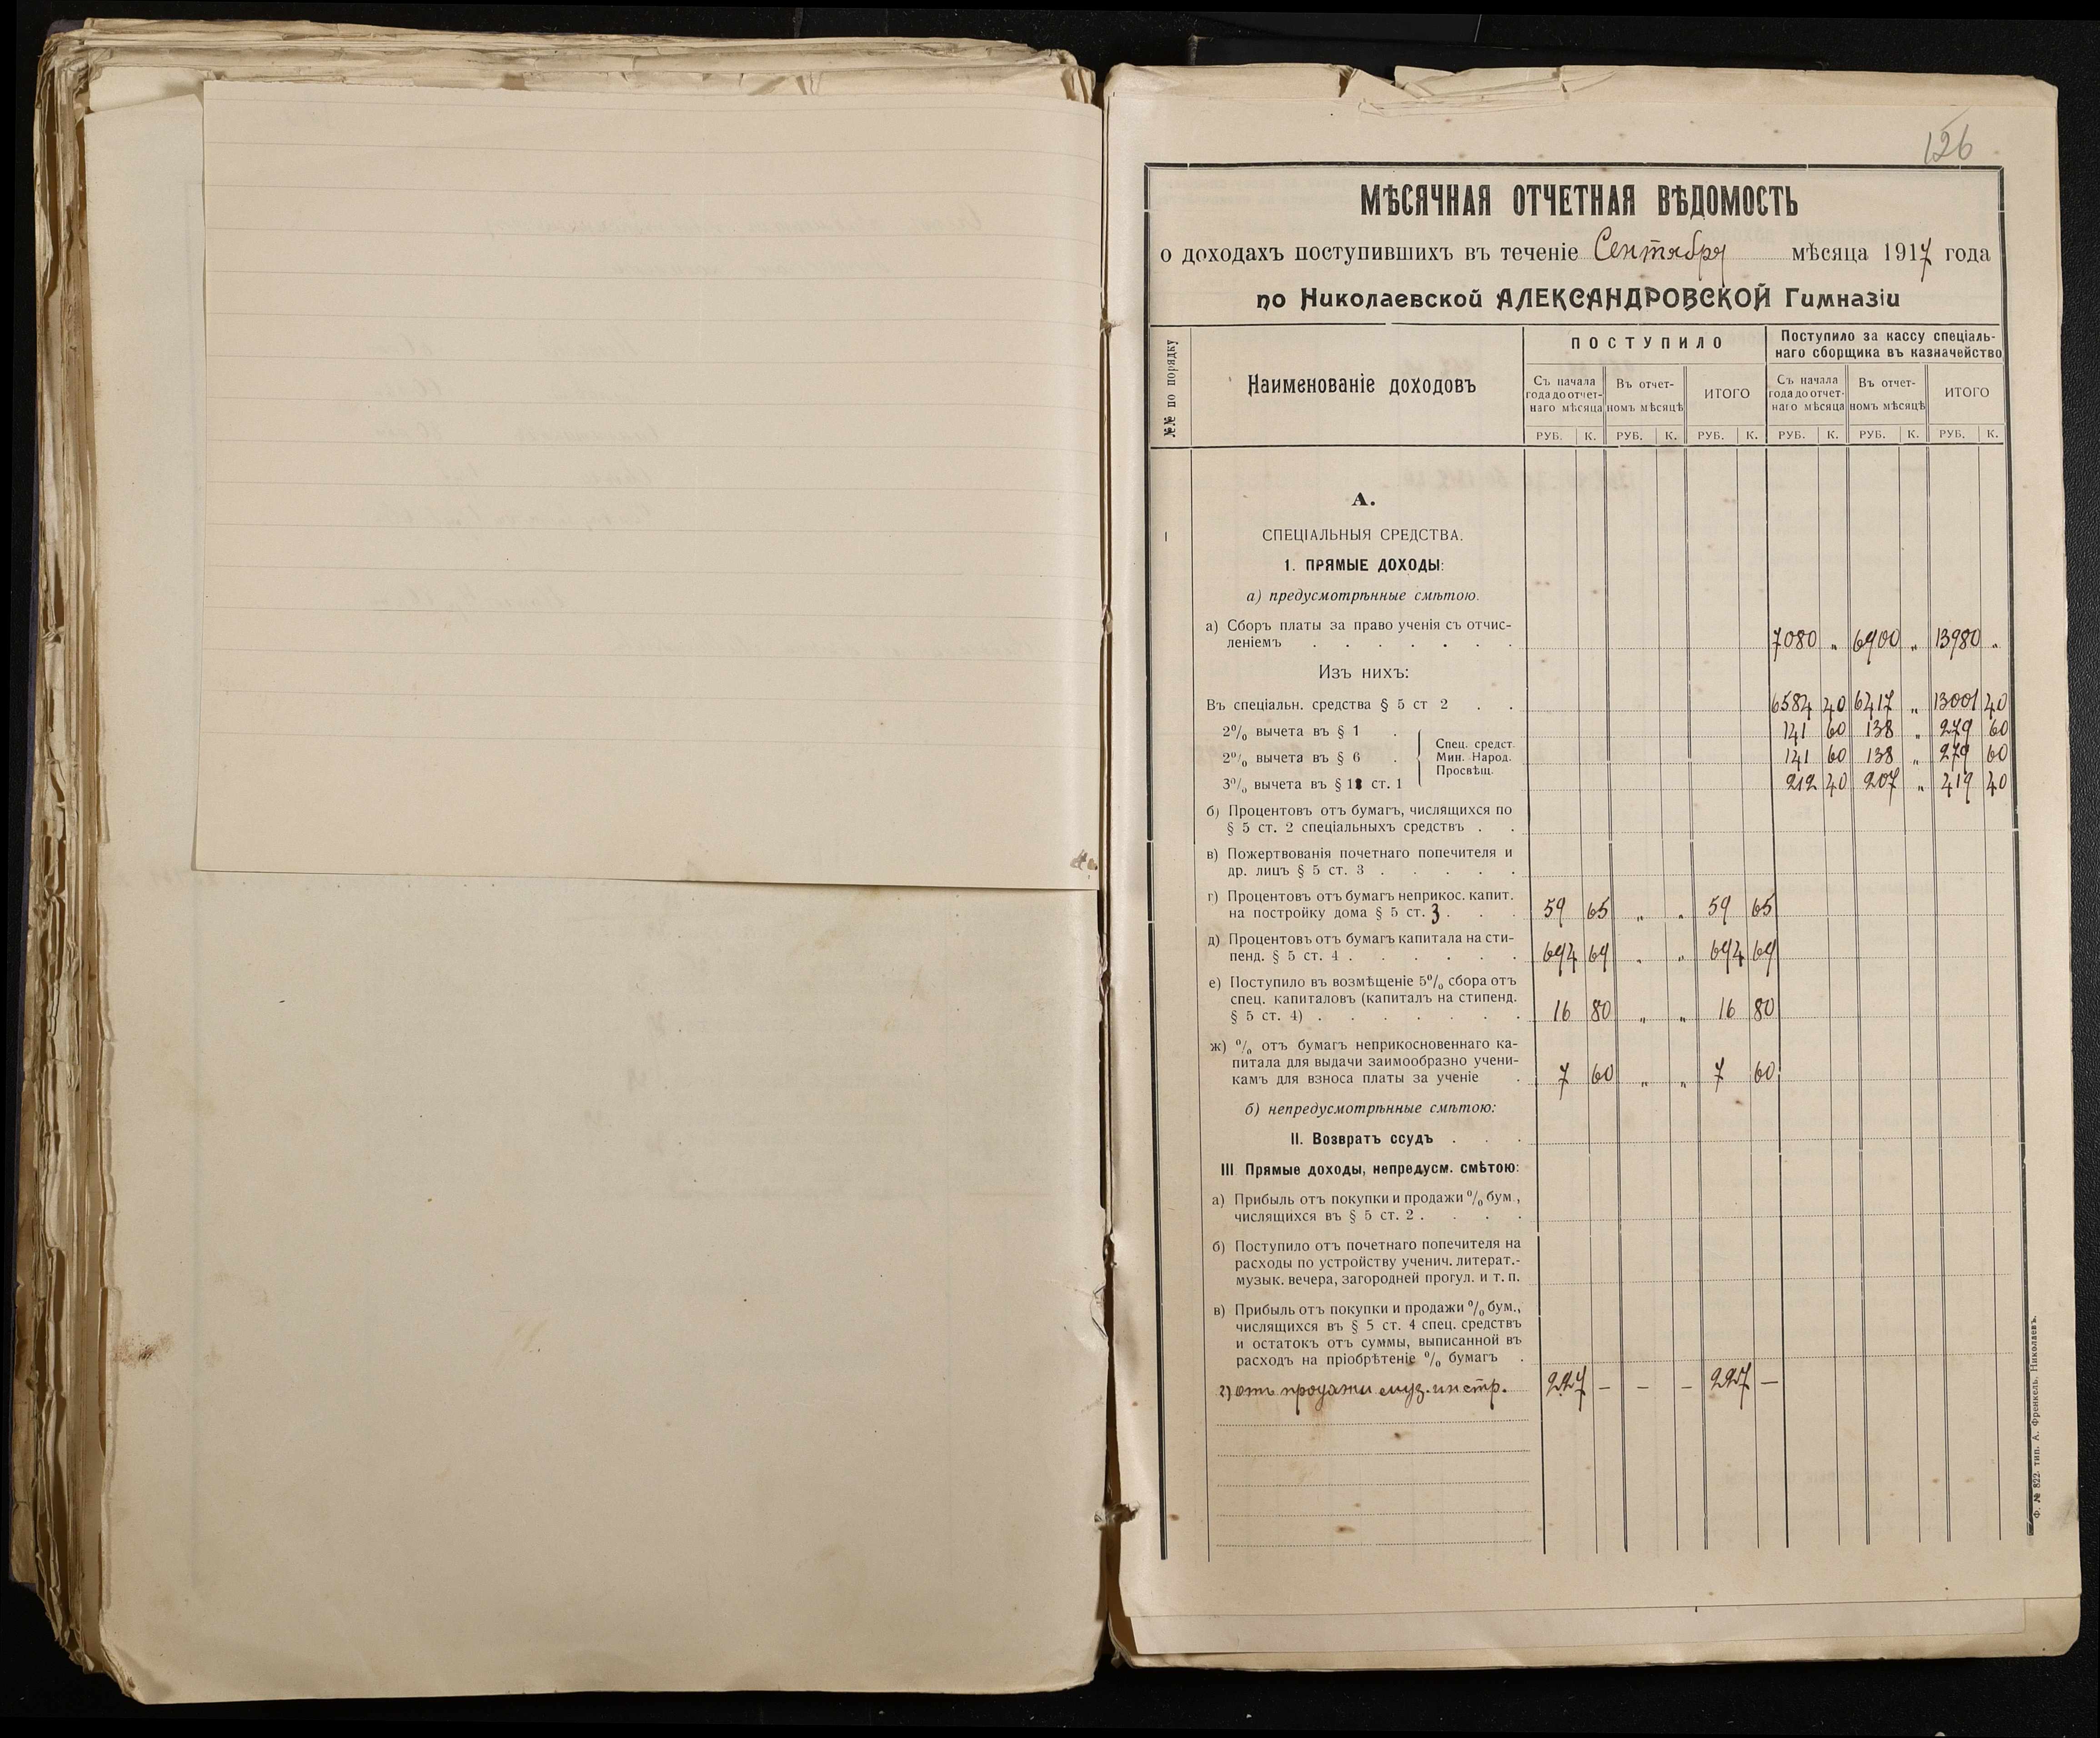 126
МѢСЯЧНАЯ ОТЧЕТНАЯ ВѢДОМОСТЬ
о доходахъ поступившихъ въ теченіе Сентября мѣсяца 1917 года
по Николаевской АЛЕКСАНДРОВСКОЙ Гимназіи
№№ по порядку
Наименованіе доходовъ
ПОСТУПИЛО
Поступило за кассу спеціаль-
наго сборщика въ казначейство
Съ начала
года до отчет-
наго мѣсяца
Въ отчет-
номъ мѣсяцѣ
ИТОГО
Съ начала
года до отчет-
наго мѣсяца
Въ отчет-
номъ мѣсяцѣ
ИТОГО
РУБ. К. РУБ. К. РУБ. К. РУБ. К. РУБ. К. РУБ. К.
А.
1 СПЕЦІАЛЬНЫЯ СРЕДСТВА.
1. ПРЯМЫЕ ДОХОДЫ:
а) предусмотрѣнные смѣтою.
а) Сборъ платы за право ученія съ отчис-
леніемъ . . . . . . . 7080 „ 6900 „ 13980 „
Изъ нихъ:
Въ спеціальн. средства § 5 ст 2 . . 6584 40 6417 „ 13001 40
2% вычета въ § 1 . 141 60 138 „ 279 60
2% вычета въ § 6 . 141 60 138 „ 279 60
3% вычета въ § 18 ст. 1 212 40 207 „ 419 40
Спец. средст.
Мин. Народ.
Просвѣщ.
б) Процентовъ отъ бумагъ, числящихся по
§ 5 ст. 2 спеціальныхъ средствъ . .
в) Пожертвованія почетнаго попечителя и
др. лицъ § 5 ст. 3 . . . . .
г) Процентовъ отъ бумагъ неприкос. капит.
на постройку дома § 5 ст. 3 . . . 59 65 „ „ 59 65
д) Процентовъ отъ бумагъ капитала на сти-
пенд. § 5 ст. 4 . . . . . . 694 69 „ „ 694 69
е) Поступило въ возмѣщеніе 5% сбора отъ
спец. капиталовъ (капиталъ на стипенд.
§ 5 ст. 4) . . . . . . . 16 80 „ „ 16 80
ж) % отъ бумагъ неприкосновеннаго ка-
питала для выдачи заимообразно учени-
камъ для взноса платы за ученіе . 7 60 „ „ 7 60
б) непредусмотрѣнные смѣтою:
II. Возвратъ ссудъ . . .
III Прямые доходы, непредусм. смѣтою:
а) Прибыль отъ покупки и продажи % бум.,
числящихся въ § 5 ст. 2 . . . .
б) Поступило отъ почетнаго попечителя на
расходы по устройству ученич. литерат.-
музык. вечера, загородней прогул. и т. п.
в) Прибыль отъ покупки и продажи % бум.,
числящихся въ § 5 ст. 4 спец. средствъ
и остатокъ отъ суммы, выписанной въ
расходъ на пріобрѣтеніе % бумагъ .
г) отъ продажи муз. инстр. 227 — — — 227 —
Ф. № 822. тип. А. Френкель. Николаевъ.